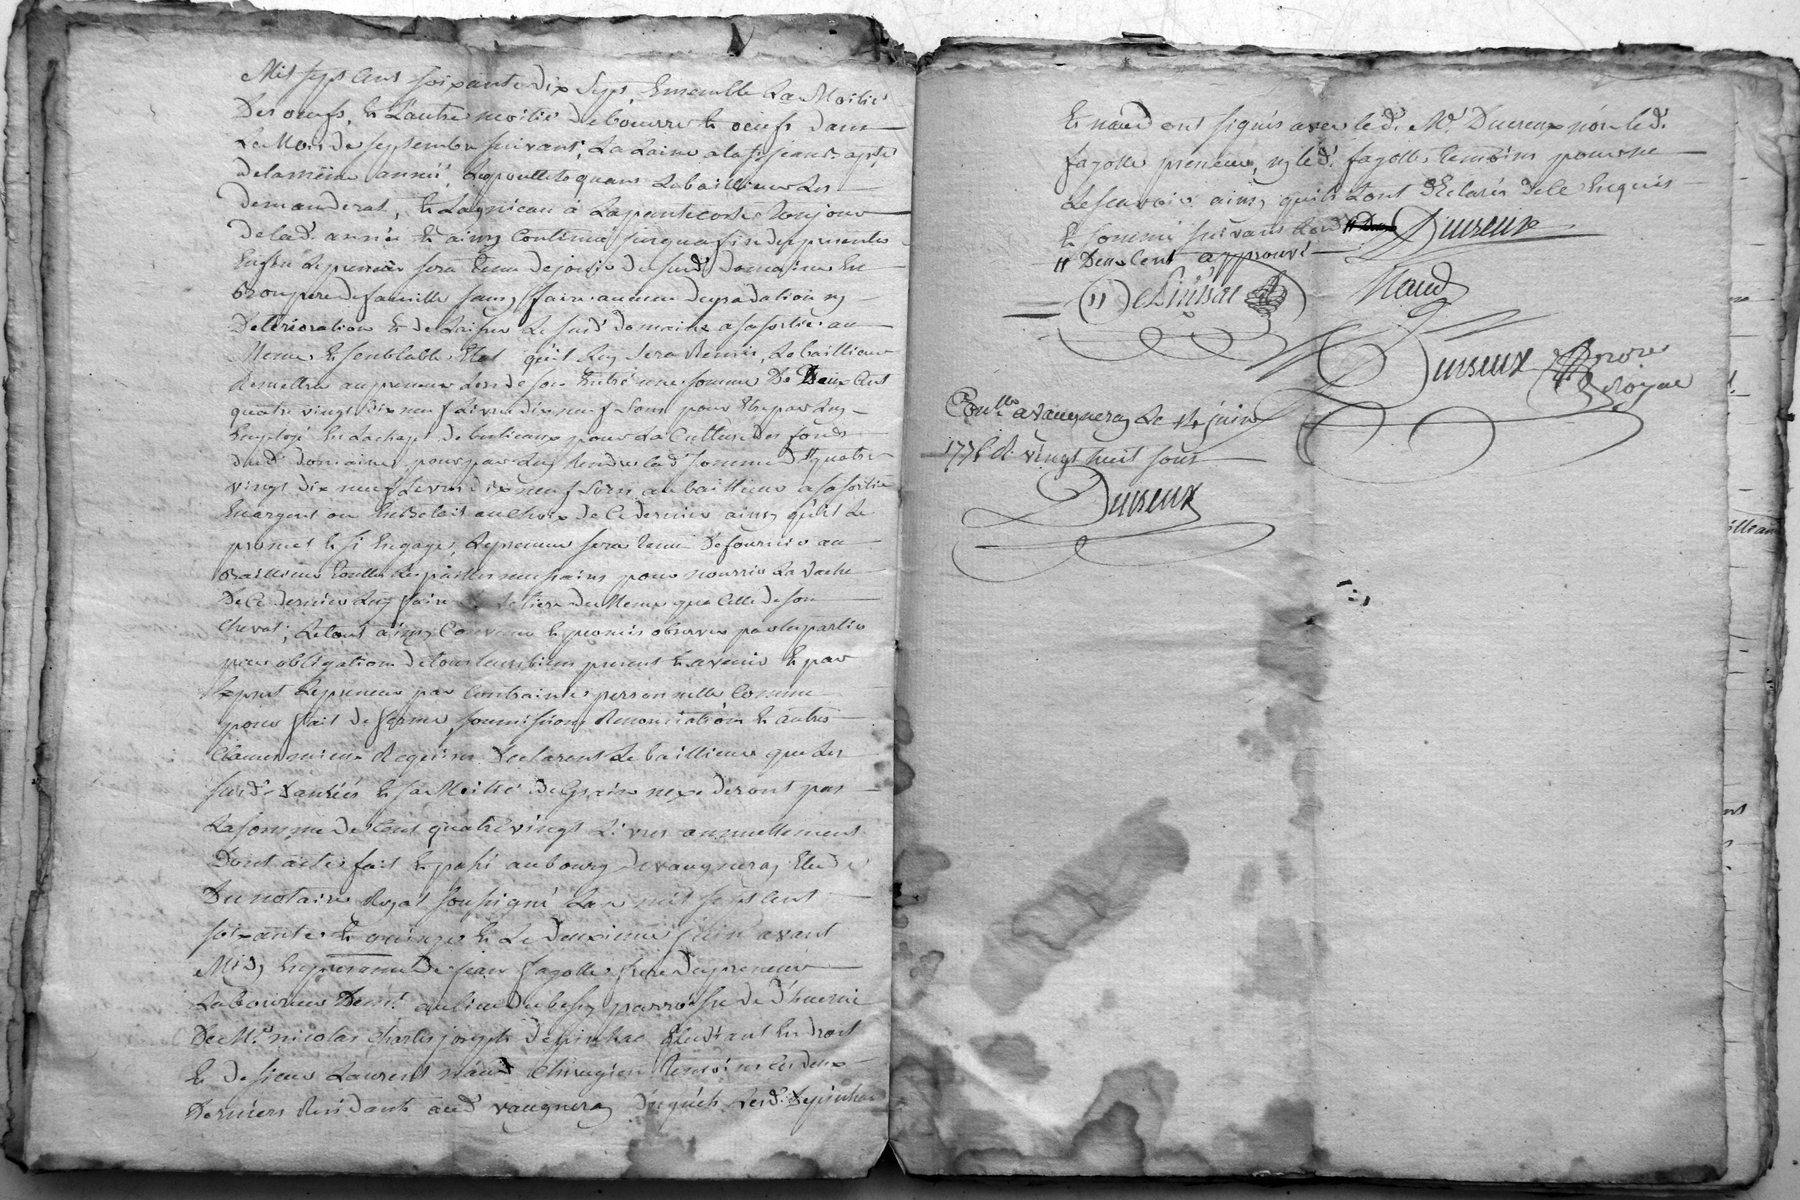 Mil sept Cent soixante dix sept, Ensemble La Moitié
Des oeufs, Et L'autre moitié de beurre Et oeufs dans
Le Mois de septembre suivant, La Laine a la st jean d'apres
de la même année, Les poulets quand Le bailleur Les
demanderat, Et L'agneau à La pentecoste Toujours
de lad. année Et ainsy Continué jusqua fin des presentes
Enfin Le preneur sera tenu de jouir du susd. Domaine En
Bon pere de famille sans y faire aucune degradation ny
Deterioration Et de Laisser Le susd. domaine a sa sortie au
Meme Et semblable Etat qu'il Luy sera Remis, Le bailleur
Remettra au preneur Lors de son Entrée une somme De Deux Cent
quatre vingt dix neuf Livres dix neuf sous pour Etre par Luy
Employé En Lachapt de bestiaux pour La Culture des fonds
dud. domaine, pour par Luy Rendre Lad. somme de " quatre
vingt dix neuf Livres dix neuf sous au bailleur a sa sortie
En argent ou En Betail au choix de Ce dernier ainsy qu'il Le
promet Et s'y Engage, Le preneur sera tenu De fournir au
Bailleur toutes Les pailles necessaires pour nourrir La vache
De Ce dernier Luy faire Litiere de Meme que Celle de son
Cheval; Le tout ainsy Convenu Et promis observer par Les parties
par obligation de tous Leurs biens presents Et avenir Et par
Exprès Le preneur par Contrainte personnelle Comme
pour fait de ferme, soumissions Renonciations Et autres
Clauses mieux Requises Declarant Le bailleur que Les
susd. Danrées Et sa Moitié de Grain n'excederont pas
La somme de Cent quatre vingt Livres annuellement
Dont acte fait Et passé au bourg de vaugneray Etude
Du notaire Royal soussigné L'an mil sept Cent
soixante Et quinze Et Le Deuxieme juin avant
Midy En presence De jean fagolle frere du preneur
Laboureur Demt. au Lieu du besy parroisse de
De Mr. nicolas Charles joseph Depinhac Etudiant En droit
Et de sieur Laurent Naud Chirurgien temoins Ces deux
Derniers Residants aud. vaugneray Lesd. Depinhac
Et naud ont signés avec led. Mr. Dureux non led.
fagolle preneur, ny led. fagolle temoin pour ne
Le sçavoir ainsy quils L'ont déclaré de Ce Enquis
Et sommé suivant L'ord. Dureux
" Deux Cent approuvé
Naud
Dureux
Royal
Conllé. a Vaugneray Le 14 juin
177 R. vingt huit sous
Dureux